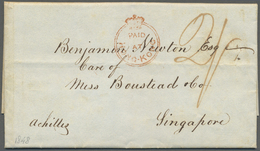 PAID
Benjamin Newton Esq
Care of
Mess Boustead & Co.
Achilles
Singapore
1848